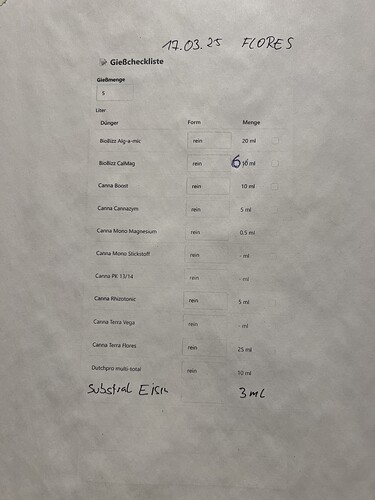 17.03.25 FLORES
Gießcheckliste
Gießmenge
5
Liter
Dünger Form Menge
BioBizz Alg-a-mic rein 20 ml
BioBizz CalMag rein 6 ml
Canna Boost rein 10 ml
Canna Cannazym rein 5 ml
Canna Mono Magnesium rein 0,5 ml
Canna Mono Stickstoff rein - ml
Canna PK 13/14 rein - ml
Canna Rhizotonic rein 5 ml
Canna Terra Vega rein - ml
Canna Terra Flores rein 25 ml
Dutchpro multi-total rein 10 ml
Substral Eisen 3 ml